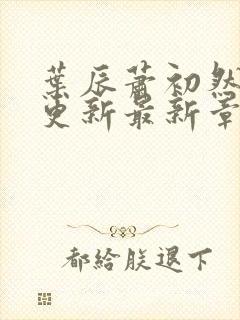 葉辰蕭初然
更新最新章
都給朕退下